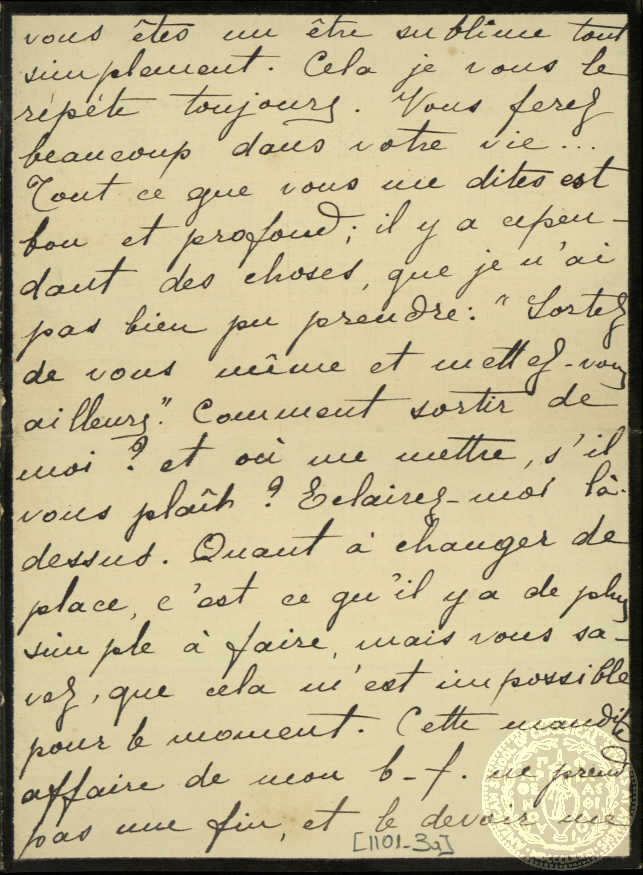 vous êtes un être sublime tout
simplement. Cela je vous le
répéte toujours. Vous ferez
beaucoup dans votre vie...
Tout ce que vous me dites est
bon et profond; il y a cepen-
dant des choses, que je n'ai
pas bien pu prendre: "Sortez
de vous même et mettez-vous
ailleurs." Comment sortir de
moi? et où me mettre, s'il
vous plaît? Eclairez-moi là-
dessus. Quant à changer de
place, c'est ce qu'il y a de plus
simple à faire, mais vous sa-
vez, que cela m'est impossible
pour le moment. Cette maudite
affaire de mon b-f. ne prend
pas une fin, et le devoir me
[1101-3a]